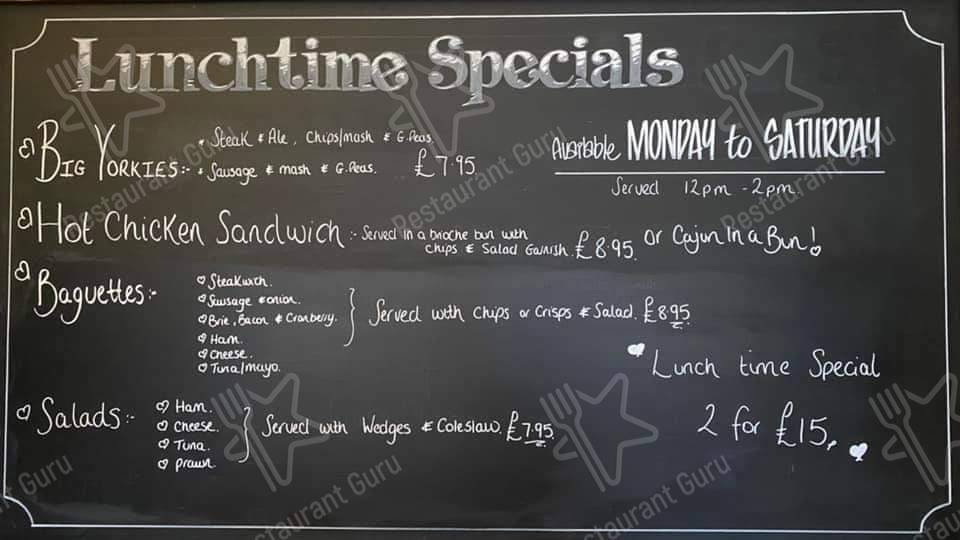 Lunchtime Specials
Big Yorkies:- * Steak & Ale, Chips/mash & G.Peas
* Sausage & mash & G.Peas. £7.95
Available MONDAY to SATURDAY
Served 12pm - 2pm
Hot Chicken Sandwich:- Served in a brioche bun with
chips & Salad Garnish. £8.95. or Cajun In a Bun!
Baguettes:-
Steakwich.
Sausage & onion.
Brie, Bacon & Cranberry.
Ham.
Cheese.
Tuna/mayo.
Served with Chips or Crisps & Salad. £8.95
Lunch time Special
2 for £15,
Salads:-
Ham.
Cheese.
Tuna.
prawn.
Served with Wedges & Coleslaw. £7.95.
Restaurant Guru
Restaurant Guru
Restaurant Guru
Restaurant Guru
Restaurant Guru